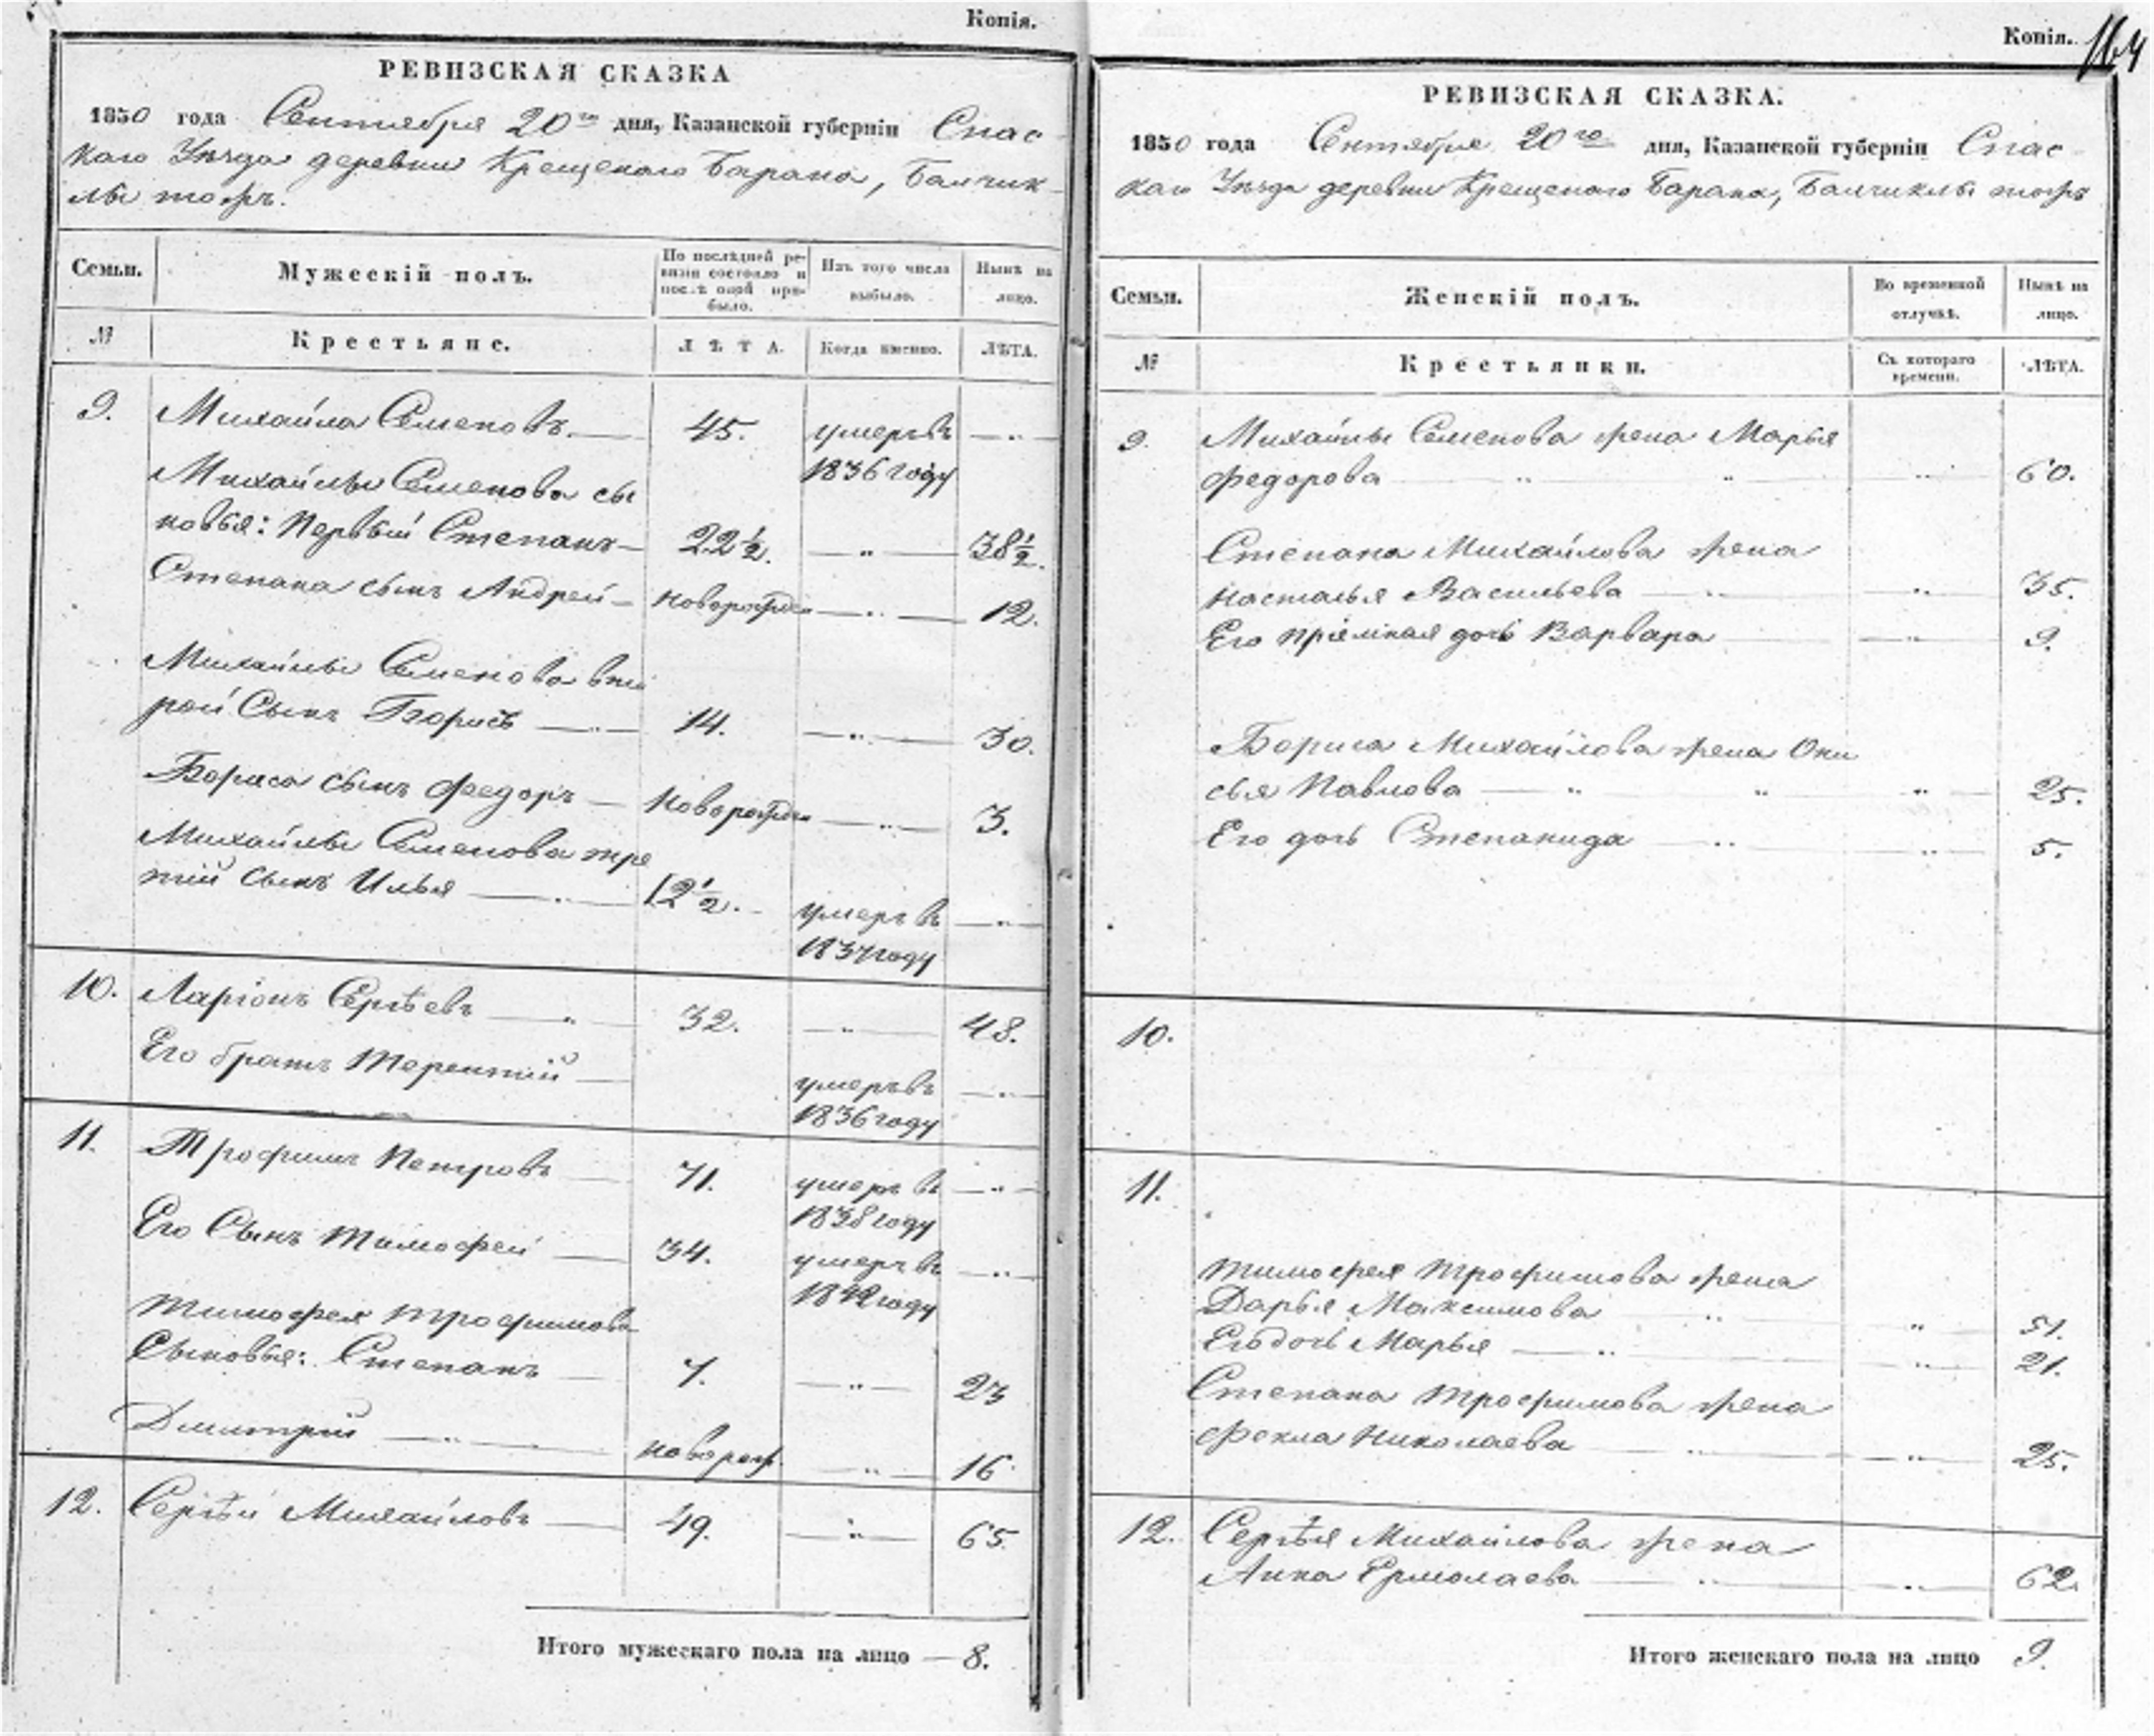 Копія.
РЕВИЗСКАЯ СКАЗКА
1850 года Сентября 20го дня, Казанской губерніи Спас
каго Уѣзда деревни Крещенаго Барана, Балчик
лы тожъ.
Семьи. Мужескій полъ. По послѣдней ре- Изъ того числа Нынѣ на
визіи состояло и выбыло. лицо.
послѣ оной при-
было.
№ Крестьяне. ЛѢТА. Когда именно. ЛѢТА.
9. Михайла Семеновъ. 45. умеръ въ — „ —
Михайлы Семенова сы 1836 году
новья: Первый Степанъ 22½. — „ — 38½.
Степана сынъ Андрей новорожден — „ — 12.
Михайлы Семенова вто
рой Сынъ Борисъ — „ — 14. — „ — 30.
Бориса сынъ Федоръ — новорожден — „ — 3.
Михайлы Семенова тре
тій сынъ Илья — „ — 12½. умеръ въ — „ —
1837 году
10. Ларіонъ Сергѣевъ — „ 32. — „ — 48.
Его братъ Терентій — умеръ въ — „ —
1836 году
11. Трофимъ Петровъ — 71. умеръ въ — „ —
1838 году
Его Сынъ Тимофей — 34. умеръ въ — „ —
1842 году
Тимофея Трофимова
Сыновья: Степанъ — 7. — „ — 23
Дмитрій — „ — новорож. — „ — 16
12. Сергѣй Михайловъ — 49. — „ — 65.
Итого мужескаго пола на лицо — 8.
Копія. 164
РЕВИЗСКАЯ СКАЗКА.
1850 года Сентября 20го дня, Казанской губерніи Спас
каго Уѣзда деревни Крещенаго Барана, Балчиклы тожъ
Семьи. Женскій полъ. Во временной Нынѣ на
отлучкѣ. лицо.
№ Крестьянки. Съ котораго ЛѢТА.
времени.
9. Михайлы Семенова жена Марья
Федорова — „ — „ — „ — 60.
Степана Михайлова жена
Настасья Васильева — „ — „ — 35.
Его пріемная дочь Варвара — „ — 9.
Бориса Михайлова жена Они
сья Павлова — „ „ „ 25.
Его дочь Степанида — „ — „ — 5.
10.
11.
Тимофея Трофимова жена
Дарья Максимова — „ — „ — 51.
Его дочь Марья — „ — „ — 21.
Степана Трофимова жена
Фекла Николаева — „ — „ — 25.
12. Сергѣя Михайлова жена
Анна Ермолаева — „ — „ — 62.
Итого женскаго пола на лицо 9.